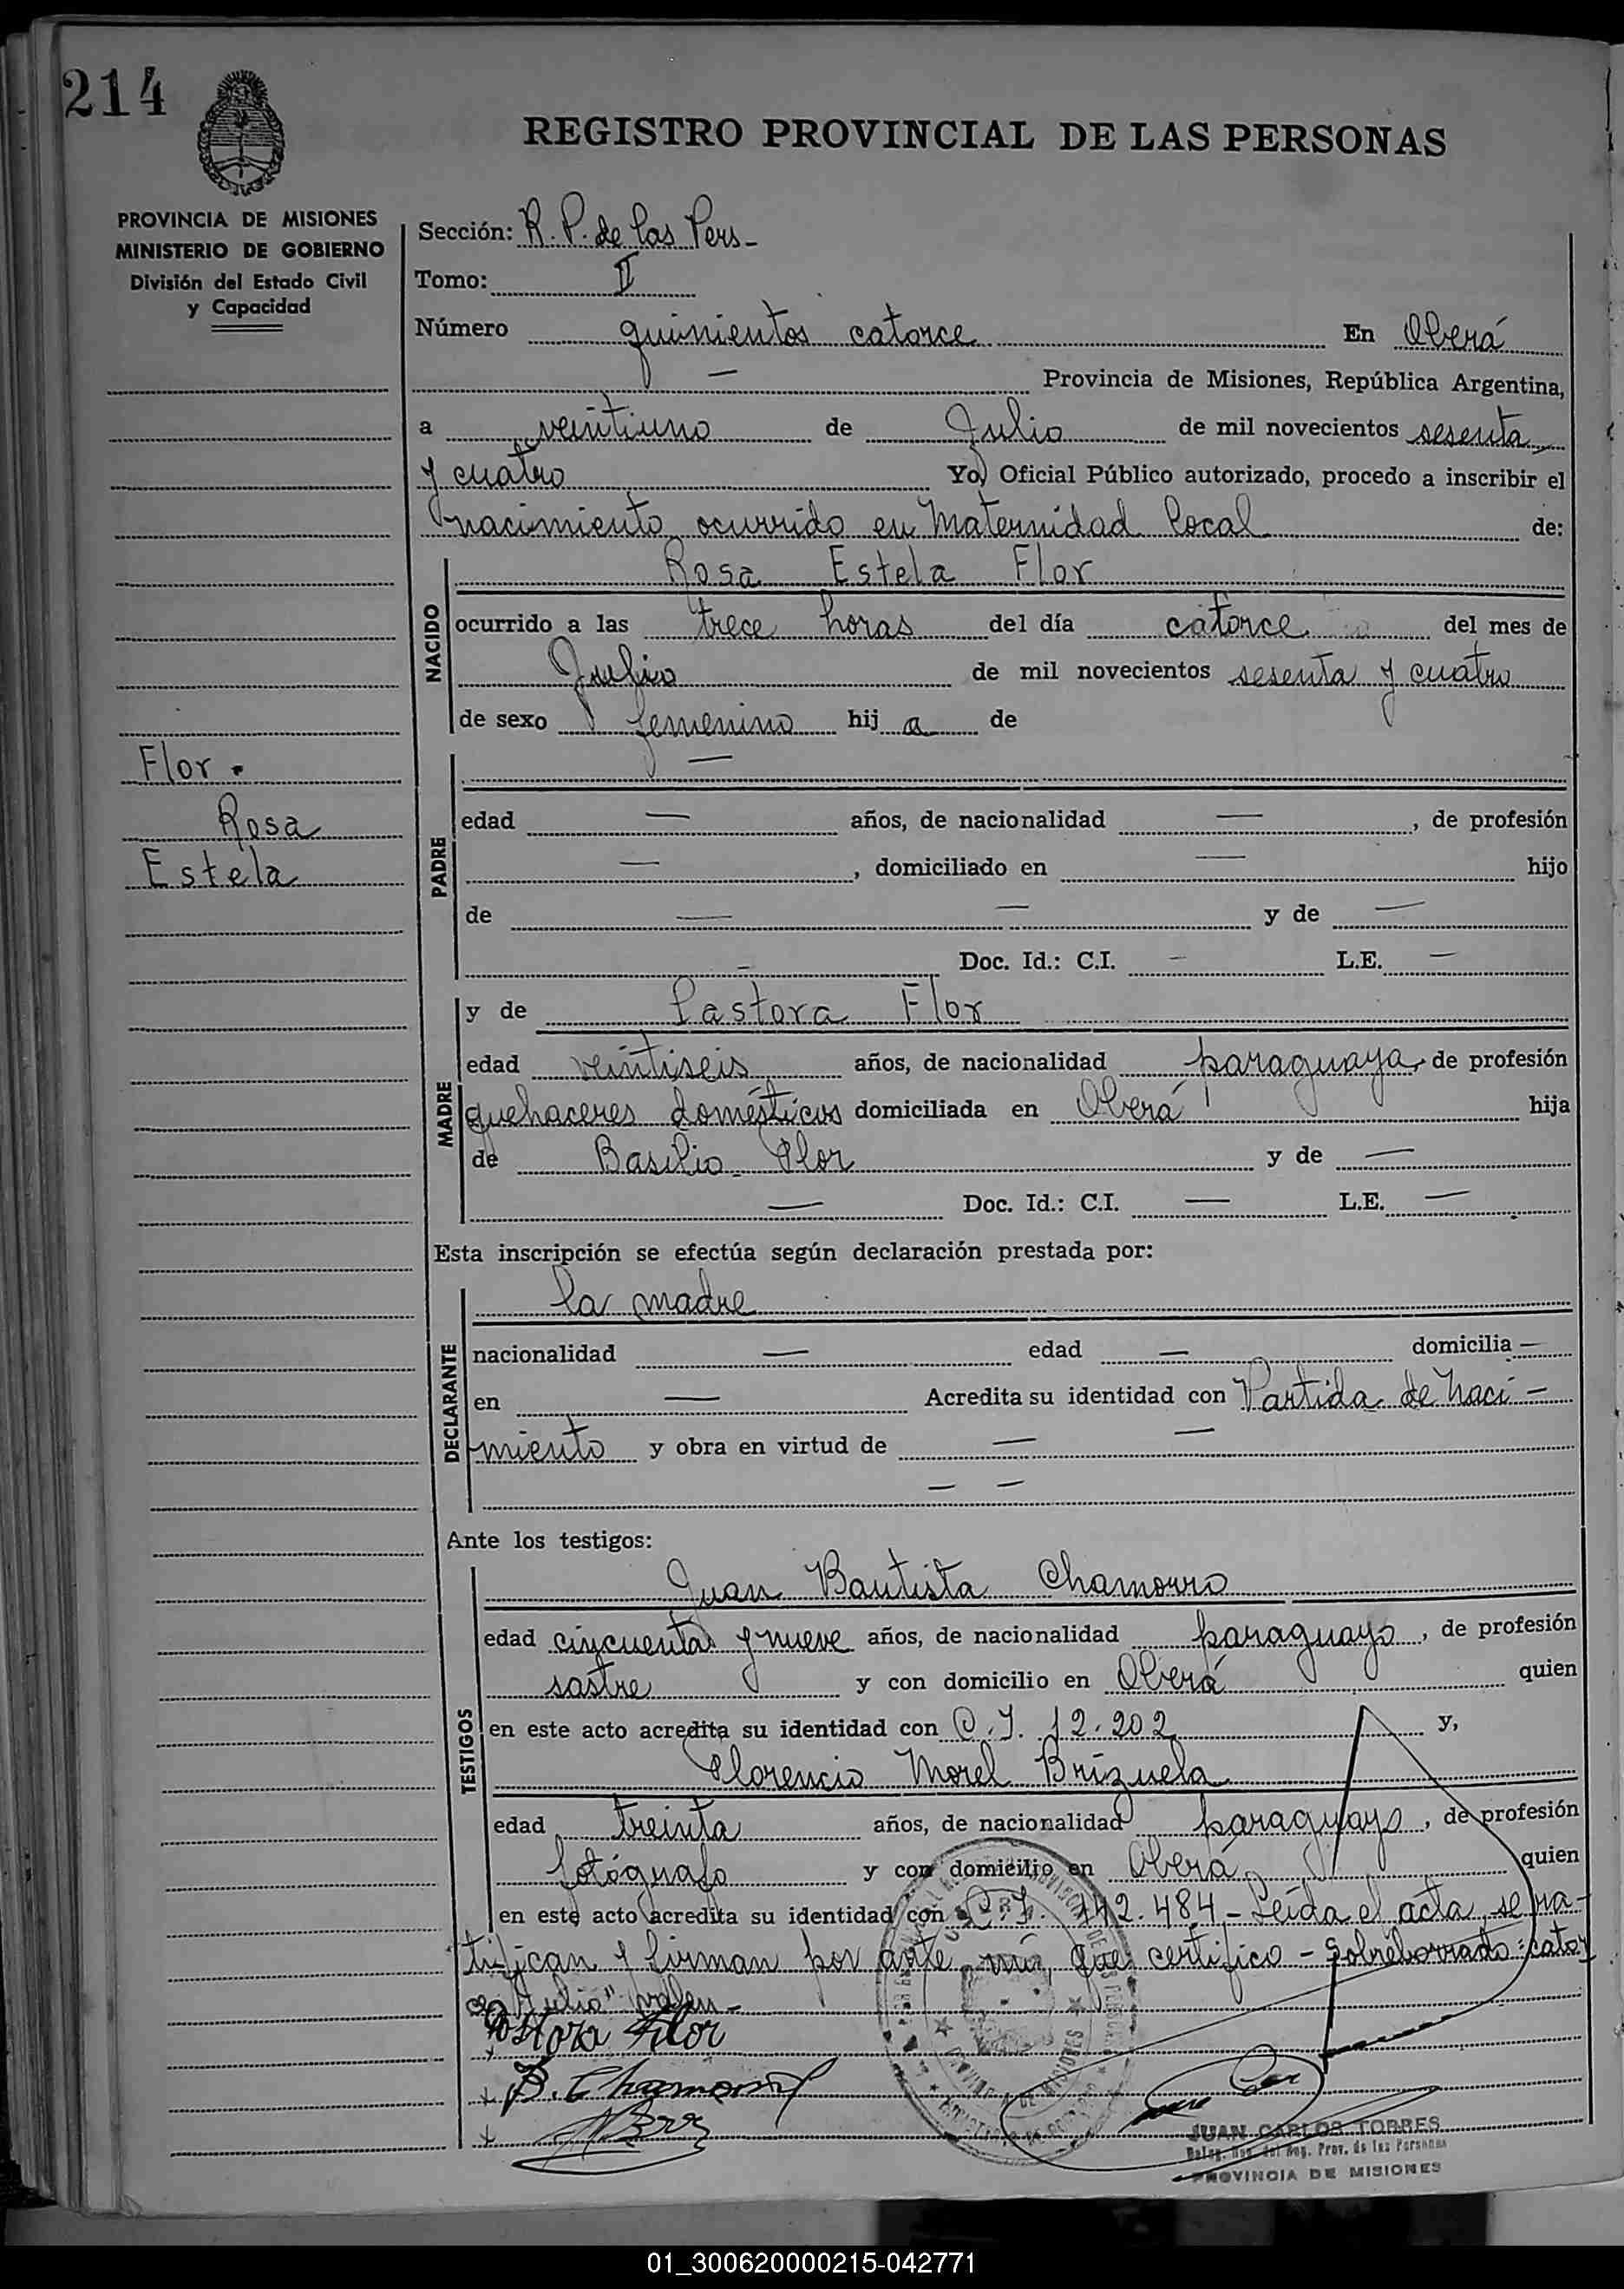 214
REGISTRO PROVINCIAL DE LAS PERSONAS
PROVINCIA DE MISIONES
MINISTERIO DE GOBIERNO
División del Estado Civil
y Capacidad
Sección: R. P. de las Pers-
Tomo: II
Número quinientos catorce En Oberá
— Provincia de Misiones, República Argentina,
a veintiuno de Julio de mil novecientos sesenta
y cuatro Yo, Oficial Público autorizado, procedo a inscribir el
nacimiento ocurrido en Maternidad Local de:
NACIDO
Rosa Estela Flor
ocurrido a las trece horas del día catorce del mes de
Julio de mil novecientos sesenta y cuatro
de sexo femenino hij a de
Flor.
Rosa
Estela
PADRE
—
edad — años, de nacionalidad —, de profesión
—, domiciliado en — hijo
de — — y de —
— Doc. Id.: C.I. — L.E. —
MADRE
y de Pastora Flor
edad veintiseis años, de nacionalidad paraguaya, de profesión
quehaceres domésticos domiciliada en Oberá hija
de Basilio Flor y de —
— Doc. Id.: C.I. — L.E. —
Esta inscripción se efectúa según declaración prestada por:
DECLARANTE
la madre
nacionalidad — edad — domicilia —
en — Acredita su identidad con Partida de Naci-
miento y obra en virtud de — —
— —
Ante los testigos:
TESTIGOS
Juan Bautista Chamorro
edad cincuenta y nueve años, de nacionalidad paraguayo, de profesión
sastre y con domicilio en Oberá quien
en este acto acredita su identidad con C.I. 12.202 y,
Florencio Morel Brizuela
edad treinta años, de nacionalidad paraguayo, de profesión
fotógrafo y con domicilio en Oberá quien
en este acto acredita su identidad con C.I. 142.484.- Leída el acta, se ra-
tifican y firman por ante mí, que certifico - Sobreborrado: cator
ce "Julio" valen -
Pastora Flor
x B. Chamorro
x
JUAN CARLOS TORRES
Deleg. del Reg. Prov. de las Personas
PROVINCIA DE MISIONES
01_300620000215-042771